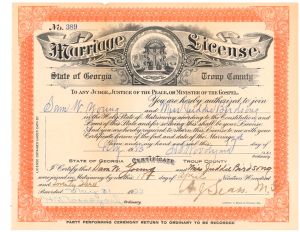 No. 389
Marriage License
State of Georgia Troup County
TO ANY JUDGE, JUSTICE OF THE PEACE, OR MINISTER OF THE GOSPEL.
You are hereby authorized to join
Sam W. Young and Miss Juddie Birdsong
in the Holy State of Matrimony according to the Constitution and
Laws of this State and for so doing this shall be your License.
And you are hereby required to return this License to me with your
Certificate hereon of the fact and date of the Marriage.
Given under my hand and seal this
STATE OF GEORGIA CERTIFICATE TROUP COUNTY
I Certify that Sam W. Young and Miss Juddie Birdsong
were joined in Matrimony by me this day of April Nineteen Hundred
and twenty three
Recorded
PARTY PERFORMING CEREMONY RETURN TO ORDINARY TO BE RECORDED